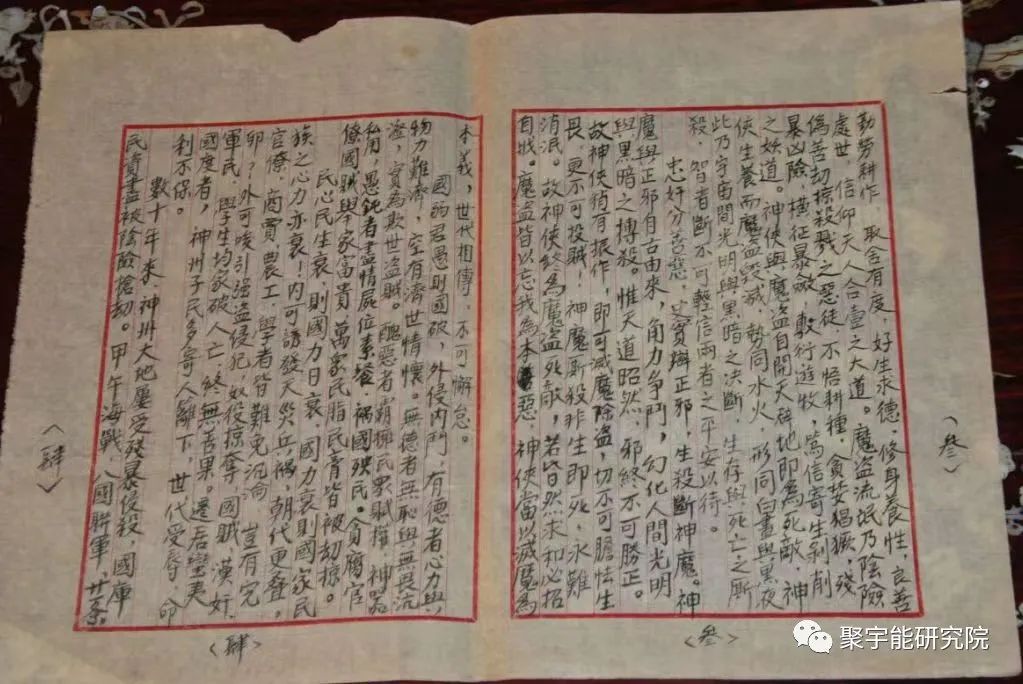 勤勞耕作,取舍有度,好生求德,修身養性,良善
處世,信仰天人合壹之大道。魔盜流氓乃陰險
偽善劫掠殺戮之惡徒,不悟耕種,貪婪猖獗,殘
暴凶險,橫征暴斂,轂行遊牧,篤信寄生剥削
之妖道。神俠與魔盜自開天碎地即為死敵,神
俠生養而魔盜毀滅,勢同水火,形同白晝與黑夜
此乃宇宙間光明與黑暗之決斷,生存與死亡之廝
殺,智者斷不可輕信兩者之平安以待。
忠奸分善惡,史實辯正邪,生殺斷神魔。神
魔與正邪自古由來,角力争鬥,幻化人間光明
與黑暗之搏殺。惟天道昭然,邪終不可勝正。
故神俠稍有振作,即可滅魔除盜,切不可膽怯生
畏,更不可投賊,神魔廝殺非生即死,永難
消泯。故神俠終為魔盜死敵,若皆忽然未知必招
自戕。魔盜皆以忘我為本惡,神俠當以滅魔為
〈叁〉
〈叁〉
本義,世代相傳,不可懈怠。
國弱君愚則國破,外侵内鬥,有德者心力與
物力難濟,空有濟世情懷。無德者無恥與無畏流
淫,實為欺世盜賊。醜惡者霸掷民眾賦權,神器
私用,愚鈍者盡情屍位素餐,禍國殃民。貪腐官
僚國賊舉家富貴,萬家民脂民膏皆被劫掠。
民心民生衰,則國力日衰,國力衰則國家民
族之心力亦衰!内可誘發天災兵禍,朝代更叠。
官僚、商賈農工、學者皆難免沉淪,豈有完
卵?外可唆引强盜侵犯,奴役掠奪,國賊,漢奸,
軍民,學生均家破人亡,終無善果。遷居蠻夷
國度者,神州子民多寄人籬下,世代受辱,命
利不保。
數十年来,神州大地屢受殘暴侵殺,國庫
民資盡被陰險搶劫。甲午海戰,八國聯軍,廿条
〈肆〉
〈肆〉
聚宇能研究院